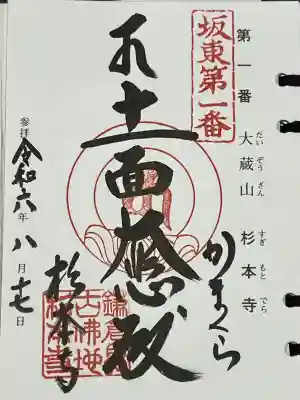 第一番 大蔵山 杉本寺
だいぞうざん すぎもとでら
坂東第一番
十一面
かまくら
杉本寺
参拝 令和六年 八月十七日
鎌倉最
古佛地
杉本寺